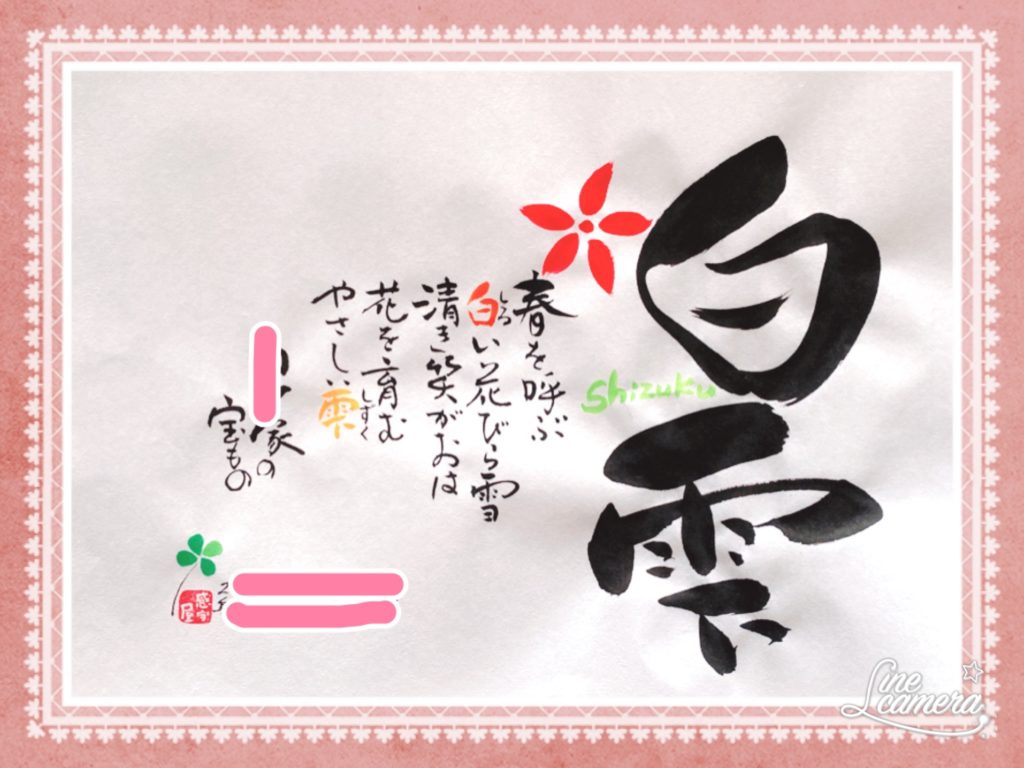 白雫
shizuku
春を呼ぶ
白い花びら雪
しろ
清き笑がおは
花を育む
やさしい雫
しずく
家の
宝もの
Line camera